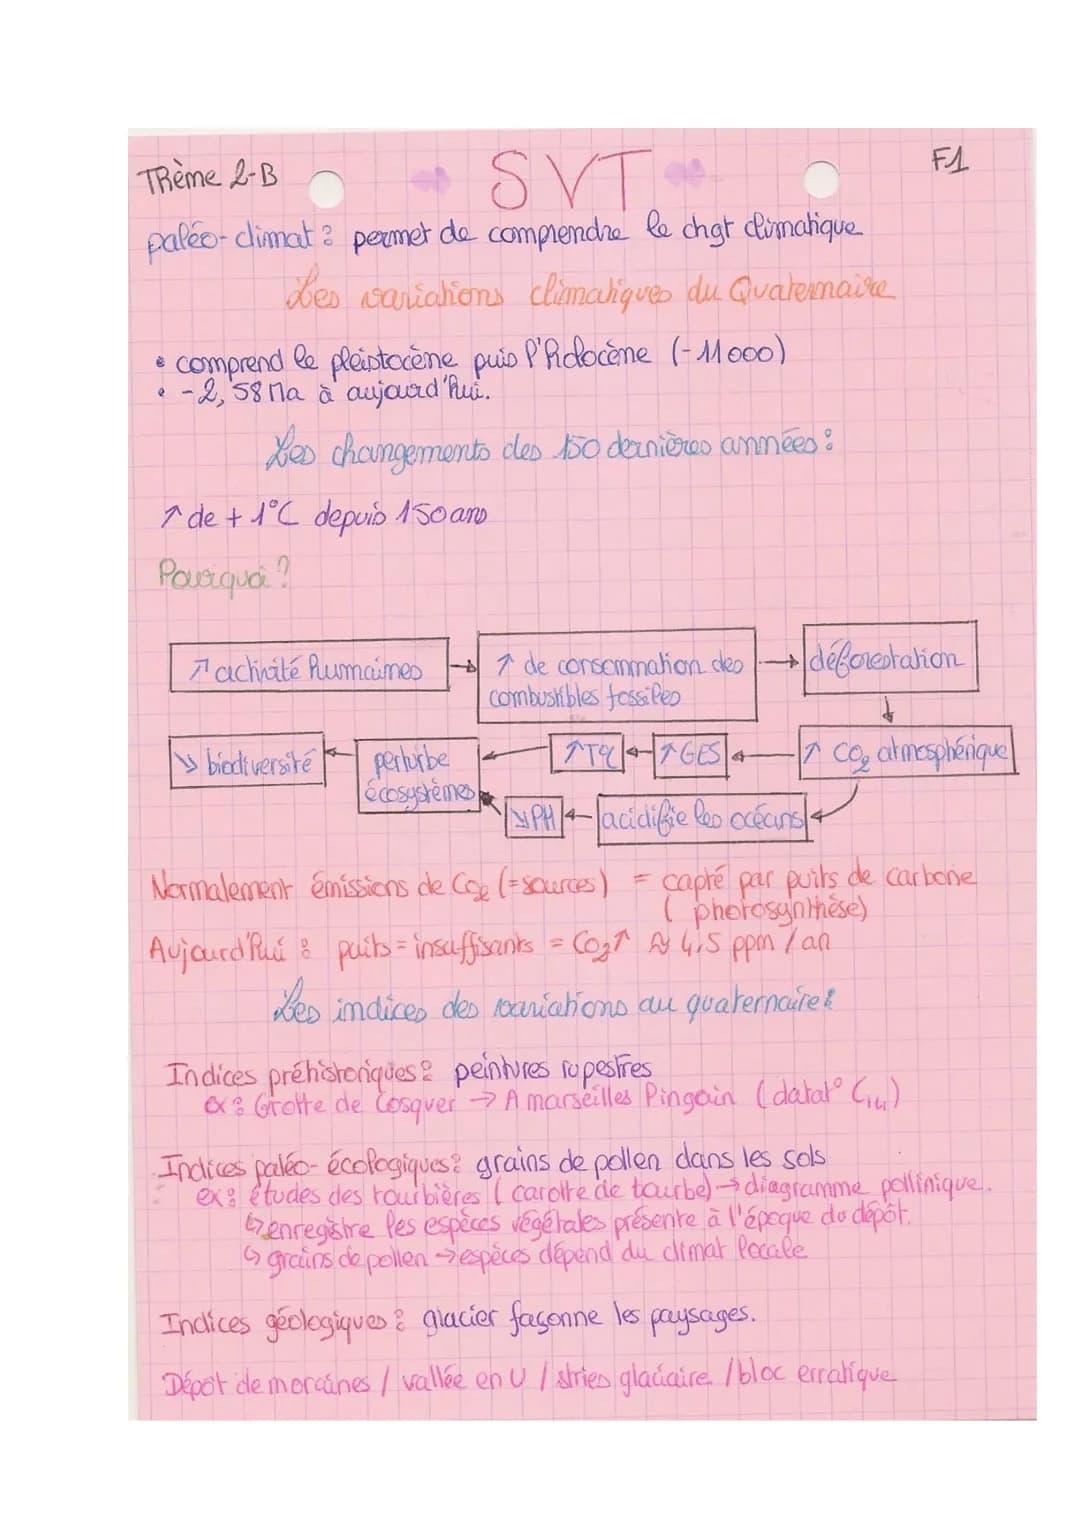 Thème 2-B
SVT
F1
paléo-climat : permet de comprendre le chgt climatique
Les variations climatiques du Quaternaire
• comprend le pleistocène puis l'holocène (-11000)
• -2,58 Ma à aujourd'hui.
Les changements des 150 dernières années :
↗ de + 1°C depuis 150 ans
Pourquoi ?
↗ activité humaines → ↗ de consommation des → déforestation
combustibles fossiles
↘ biodiversité ← perturbe ← ↑T°C ← ↗ GES ← ↗ CO2 atmosphérique
écosystèmes
↘ PH ← acidifie les océans
Normalement émissions de CO2 (= sources) = capté par puits de carbone
( photosynthèse)
Aujourd'hui : puits = insuffisants = CO2↑ ≈ 4,5 ppm / an
Les indices des variations au quaternaire :
Indices préhistoriques : peintures rupestres
ex : Grotte de Cosquer → A marseilles Pingoin (datat° C14)
Indices paléo-écologiques : grains de pollen dans les sols
ex : études des tourbières ( carotte de tourbe) → diagramme pollinique.
↳ enregistre les espèces végétales présente à l'époque du dépôt.
↳ grains de pollen → espèces dépend du climat locale
Indices géologiques : glacier façonne les paysages.
Dépôt de moraines / vallée en U / stries glaciaire / bloc erratique